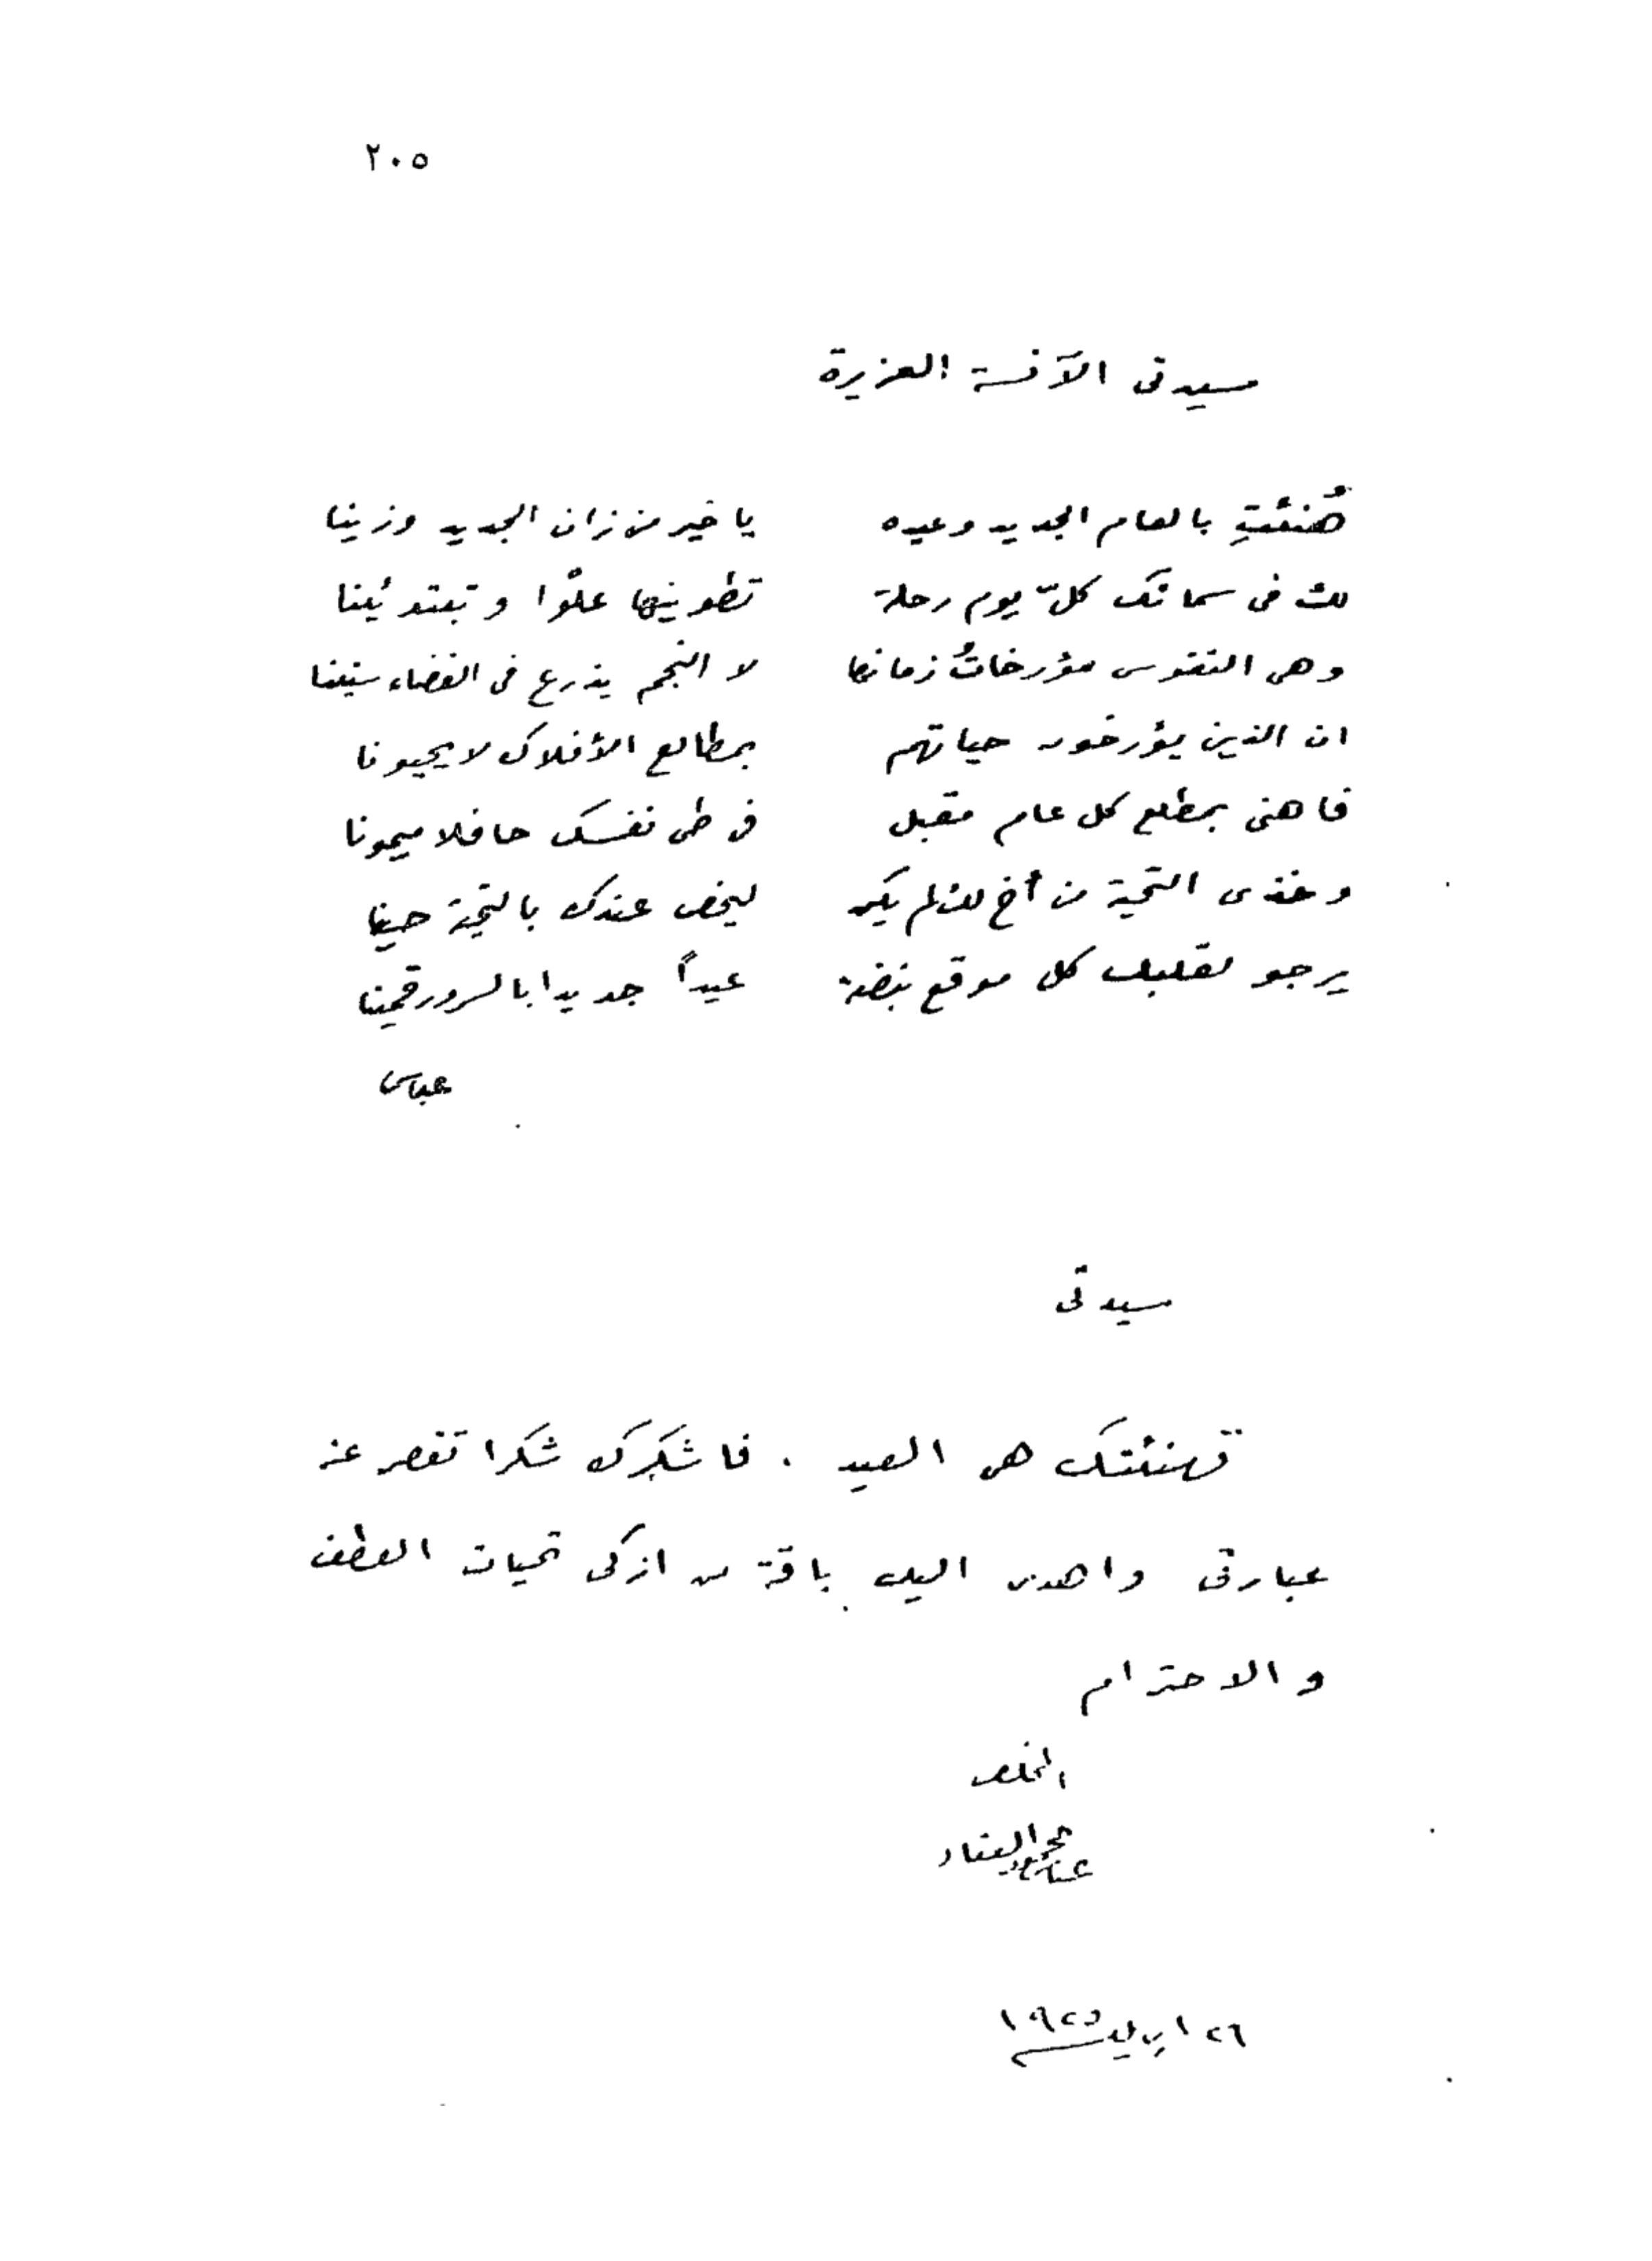 ٢٠٥
سيدتى الآنسة العزيزة
هُنئتِ بالعام الجديد وعيده يا خير من زان الجديد وزينا
لك فى سمائك كلّ يوم رحلة تطوينها علوًّا وتبتدئينا
وهى النفوس مؤرخاتُ زمانها لا النجم يذرع فى الفضاء سنينا
ان الذين يؤرخون حياتهم بمطالع الأفلاك لا يحيونا
فاهنى بمطلع كل عام مقبل فى طى نفسك حافلا ميمونا
وخذى التحية من أخ لك لم يكن ليخص عندك بالتحية حينا
يرجو لقلبك كل موقع نبضة عيداً جديدا بالسرور قمينا
عباس
سيدتى
تهنئتك هى العيد . فاشكرك شكرا تقصر عنه
عبارتى واهدى اليك باقة من ازكى تحيات العطف
والاحترام
المخلص
عباس محمود العقاد
٢٦ ابريل ١٩٢٥